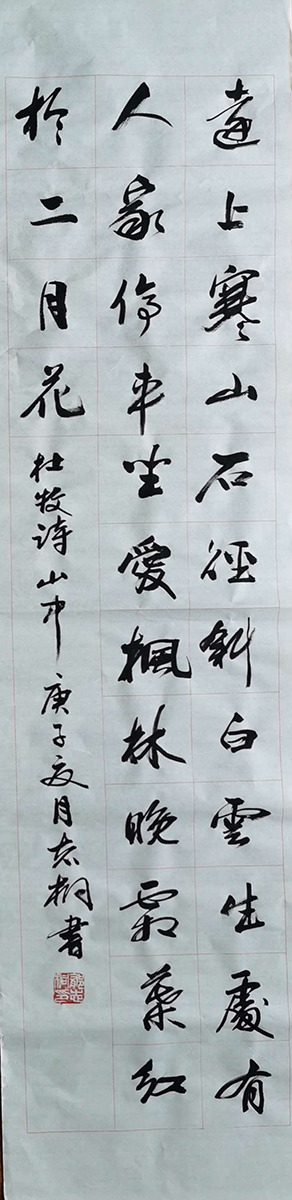 遠上寒山石徑斜白雲生處有
人家停車坐愛楓林晚霜葉紅
於二月花
杜牧诗山行庚子夏月志桐書